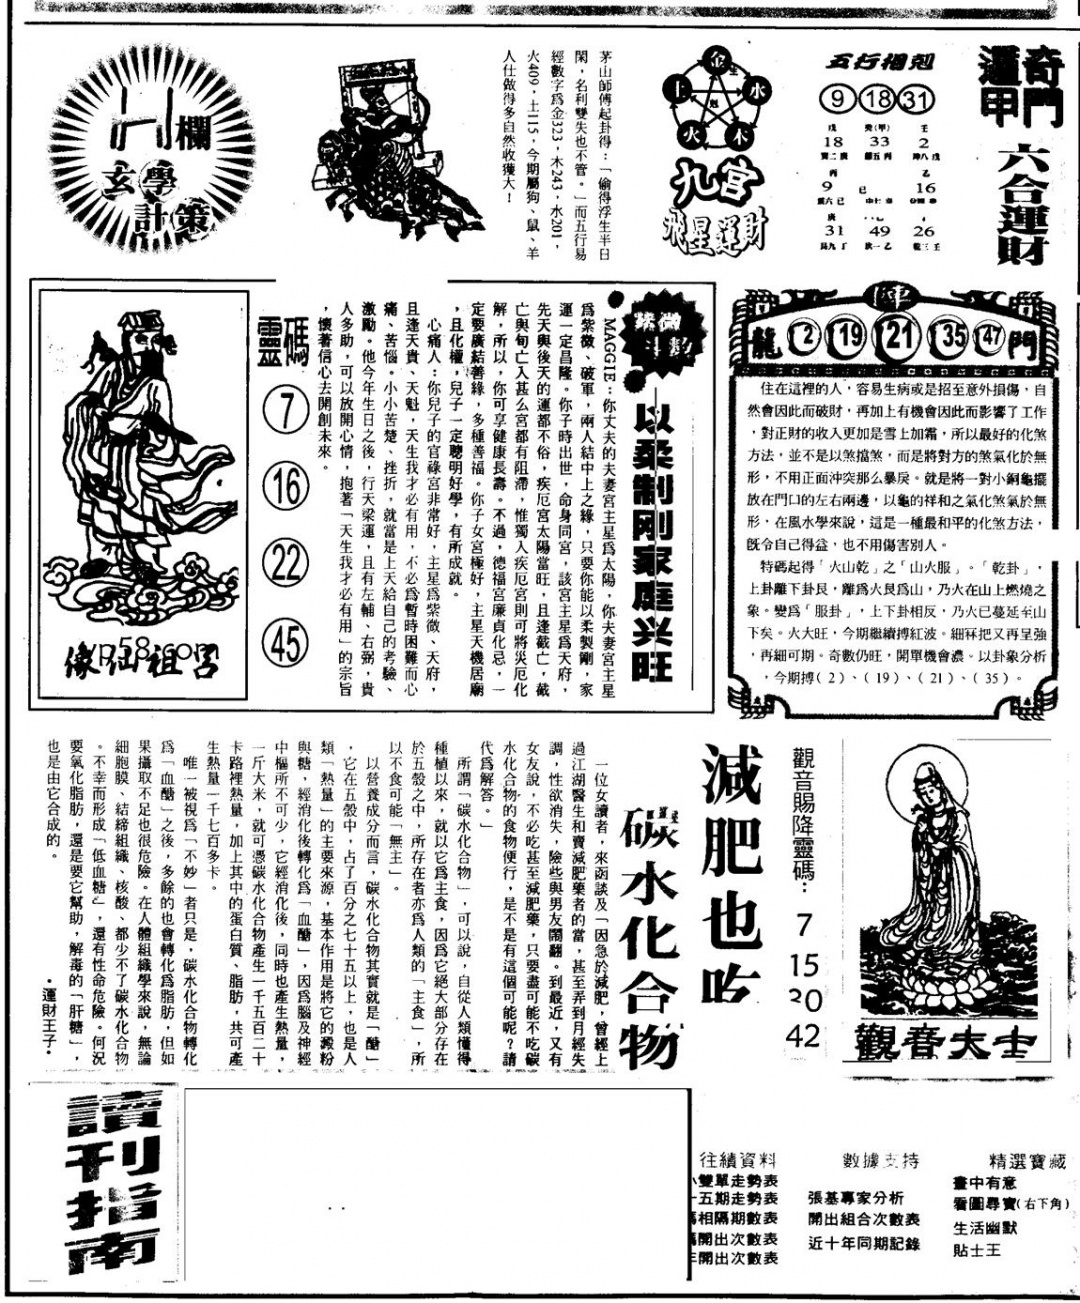 奇門
遁甲
六合運財
五行相剋
9 18 31
戊 癸(甲) 壬
18 33 2
丙 乙
9 16
31 49 26
金 生
水
木
火
土
剋
九宮
飛星運財
茅山師傅起卦得：「偷得浮生半日
閑，名利雙失也不管。」而五行易
經數字為金323，木243，水201，
火409，土115，今期屬狗、鼠、羊
人仕做得多自然收獲大！
H欄
玄學
計策
陣
龍 2 19 21 35 47 門
住在這裡的人，容易生病或是招至意外損傷，自
然會因此而破財，再加上有機會因此而影響了工作
，對正財的收入更加是雪上加霜，所以最好的化煞
方法，並不是以煞擋煞，而是將對方的煞氣化於無
形，不用正面沖突那么暴戾。就是將一對小銅龜擺
放在門口的左右兩邊，以龜的祥和之氣化煞氣於無
形，在風水學來說，這是一種最和平的化煞方法，
既令自己得益，也不用傷害別人。
特碼起得「火山乾」之「山火服」。「乾卦」，
上卦離下卦艮，離為火艮為山，乃火在山上燃燒之
象。變為「服卦」，上下卦相反，乃火已蔓延至山
下矣。火大旺，今期繼續搏紅波。細冧把又再呈強
，再細可期。奇數仍旺，開單機會濃。以卦象分析
，今期搏（2）、（19）、（21）、（35）。
紫微
斗數
以柔制剛家庭兴旺
MAGGIE：你丈夫的夫妻宮主星為太陽，你夫妻宮主星
為紫微、破軍，兩人結中上之緣，只要你能以柔製剛，家
運一定昌隆。你子時出世，命身同宮，該宮主星為天府，
先天與後天的運都不俗，疾厄宮太陽當旺，且逢截亡，截
亡與旬亡入甚么宮都有阻滯，惟獨入疾厄宮則可將災厄化
解，所以，你可享健康長壽。不過，德福宮廉貞化忌，一
定要廣結善緣，多種善福。你子女宮極好，主星天機居廟
，且化權，兒子一定聰明好學，有所成就。
心痛人：你兒子的官祿宮非常好，主星為紫微、天府，
且逢天貴、天魁，天生我才必有用，不必為暫時困難而心
痛、苦惱。小小苦楚、挫折，就當是上天給自己的考驗、
激勵。他今年生日之後，行天梁運，且有左輔、右弼，貴
人多助，可以放開心情，抱著「天生我才必有用」的宗旨
，懷著信心去開創未來。
靈碼
7
16
22
45
p58.com
呂祖仙像
觀音賜降靈碼：
7
15
30
42
觀音大士
減肥也吃
碳水化合物
一位女讀者，來函談及「因急於減肥，曾經上
過江湖醫生和賣減肥藥者的當，甚至弄到月經失
調，性欲消失，險些與男友鬧翻。到最近，又有
女友說，不必吃甚至減肥藥，只要盡可能不吃碳
水化合物的食物便行，是不是有這個可能呢？請
代為解答。」
所謂「碳水化合物」，可以說，自從人類懂得
種植以來，就以它為主食，因為它絕大部分存在
於五殼之中，所存在者亦為人類的「主食」，所
以不食可能「無主」。
以營養成分而言，碳水化合物其實就是「醣」
，它在五殼中，占了百分之七十五以上，也是人
類「熱量」的主要來源，基本作用是將它的澱粉
與糖，經消化後轉化為「血醣」，因為腦及神經
中樞所不可少，它經消化後，同時也產生熱量，
一斤大米，就可憑碳水化合物產生一千五百二十
卡路裡熱量，加上其中的蛋白質、脂肪，共可產
生熱量一千七百多卡。
唯一被視為「不妙」者只是，碳水化合物轉化
為「血醣」之後，多餘的也會轉化為脂肪，但如
果攝取不足也很危險。在人體組織學來說，無論
細胞膜、結締組織、核酸、都少不了碳水化合物
。不幸而形成「低血糖」，還有性命危險。何況
要氧化脂肪，還是要它幫助，解毒的「肝糖」，
也是由它合成的。
·運財王子·
讀刊指南
往績資料
小雙單走勢表
十五期走勢表
相隔期數表
開出次數表
開出次數表
數據支持
張基專家分析
開出組合次數表
近十年同期記錄
精選寶藏
畫中有意
看圖尋寶(右下角)
生活幽默
貼士王